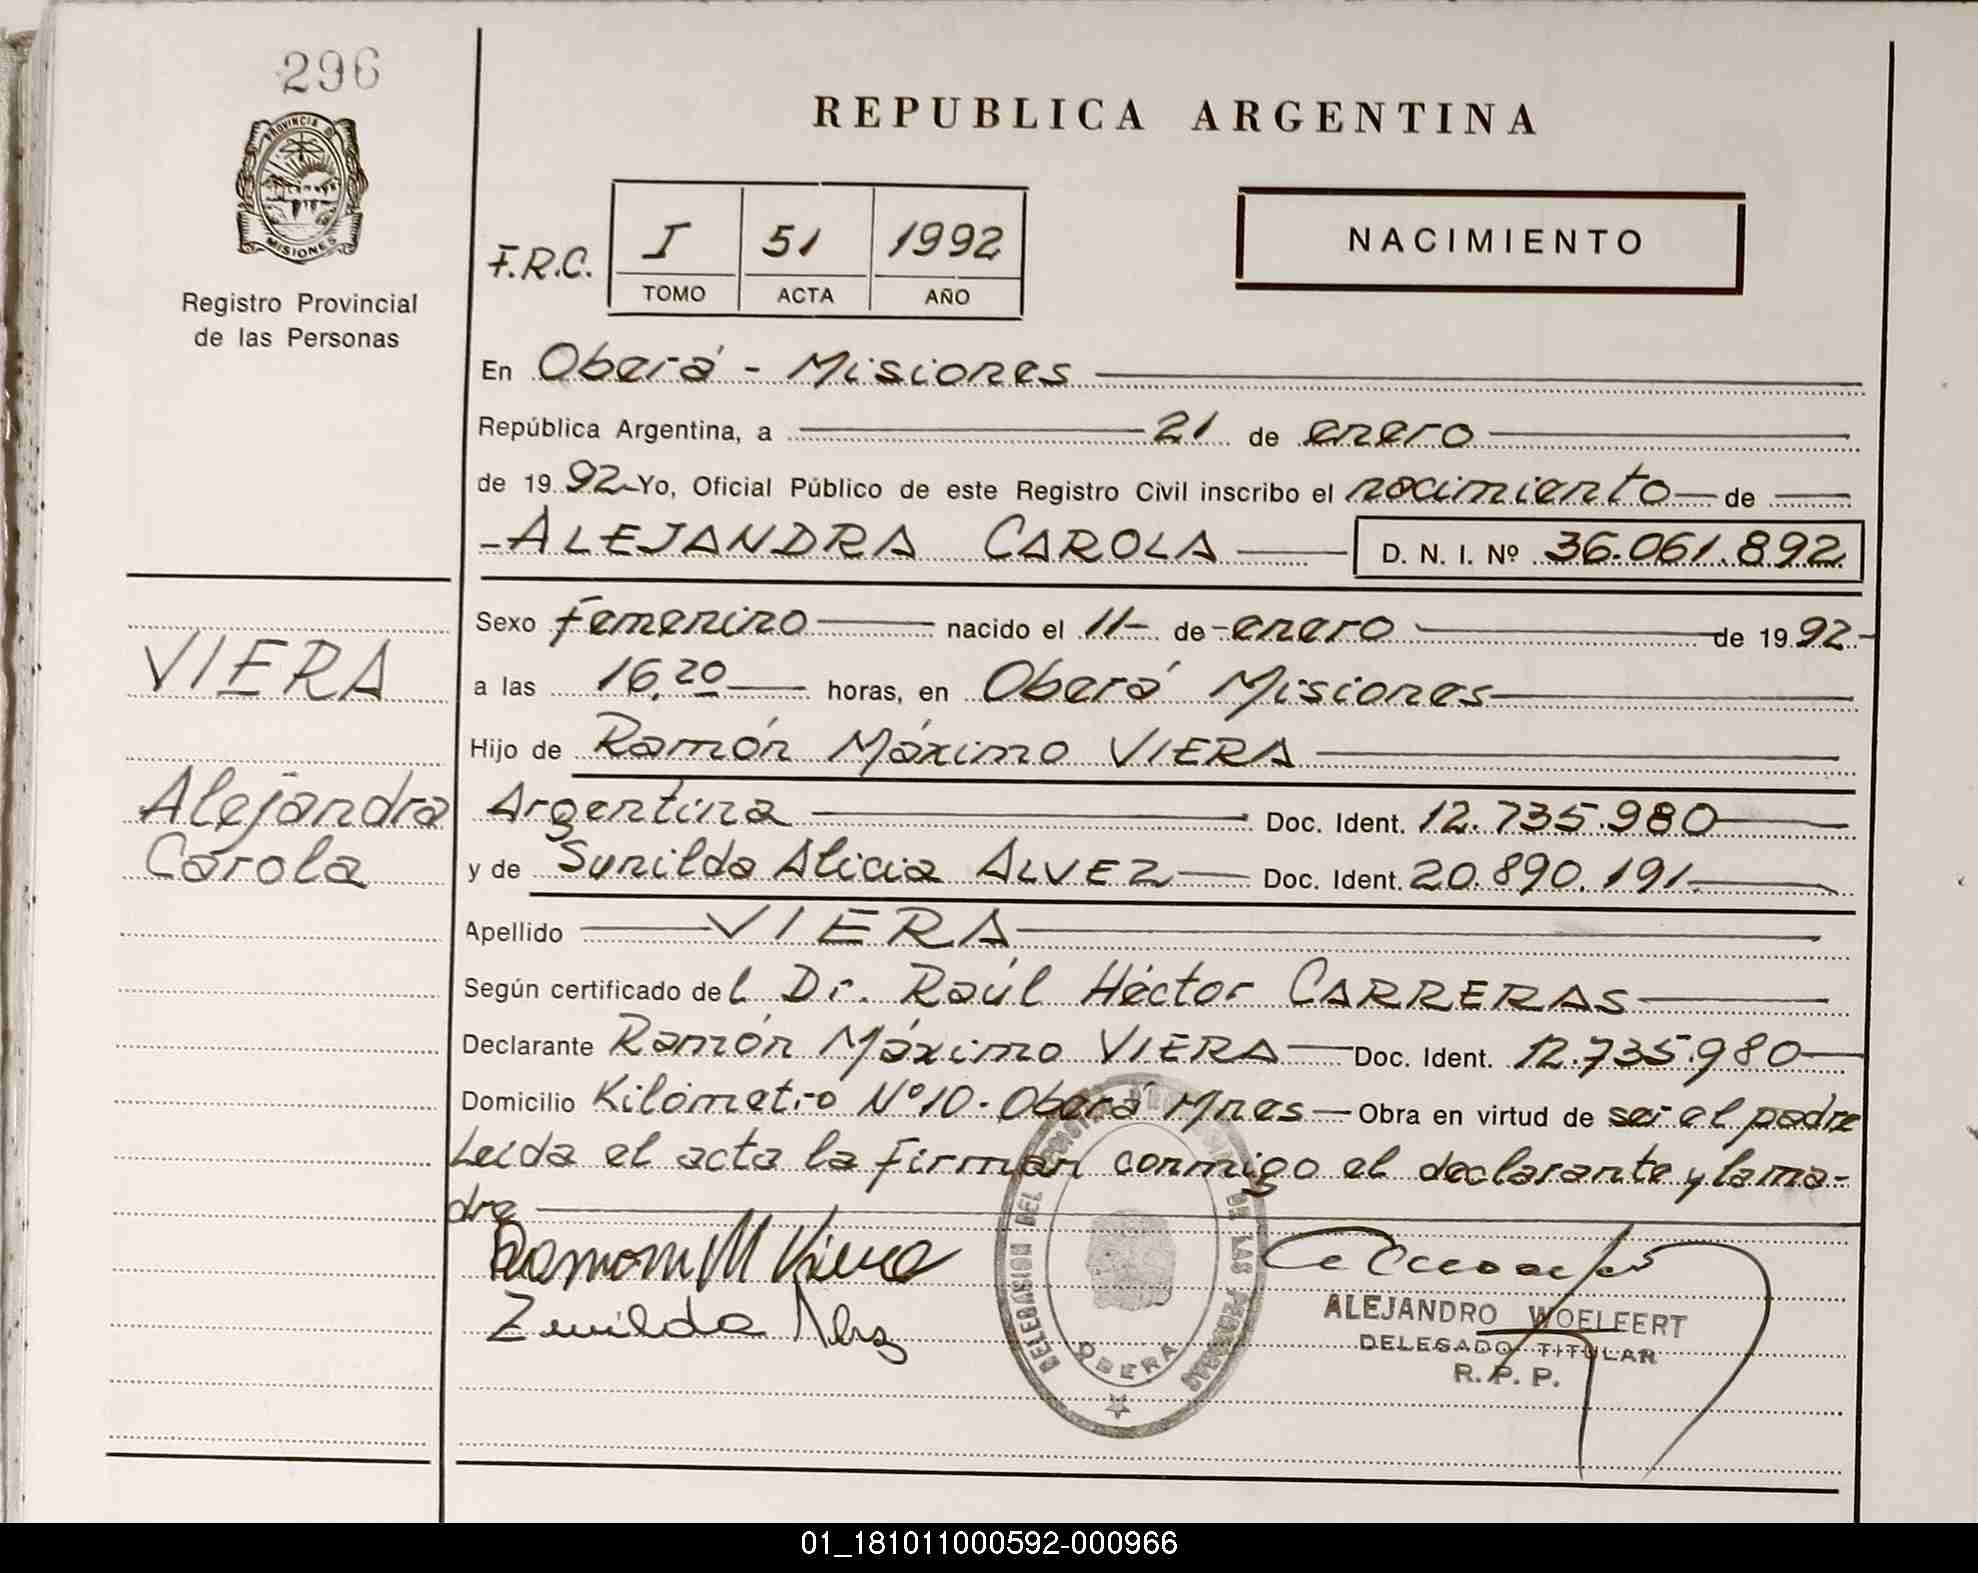 296
PROVINCIA D
MISIONES
Registro Provincial
de las Personas
REPUBLICA ARGENTINA
F.R.C.
I 51 1992
TOMO ACTA AÑO
NACIMIENTO
En Oberá - Misiones
República Argentina, a 21 de enero
de 19 92 Yo, Oficial Público de este Registro Civil inscribo el nacimiento de
- ALEJANDRA CAROLA D. N. I. Nº 36.061.892
VIERA
Alejandra
Carola
Sexo femenino nacido el 11- de - enero de 19 92 -
a las 16,20 horas, en Oberá Misiones
Hijo de Ramón Máximo VIERA
Argentina Doc. Ident. 12.735.980
y de Sunilda Alicia ALVEZ Doc. Ident. 20.890.191.
Apellido VIERA
Según certificado del Dr. Raúl Héctor CARRERAS
Declarante Ramón Máximo VIERA Doc. Ident. 12.735.980
Domicilio Kilómetro Nº 10 - Oberá Mnes Obra en virtud de ser el padre
Leída el acta la firman conmigo el declarante y la ma-
dre
Ramom M Viera
Zunilda Alvez
DELEG DEL REGISTRO DE LAS PERSONAS
OBERA
ALEJANDRO WOELFERT
DELEGADO TITULAR
R. P. P.
01_181011000592-000966